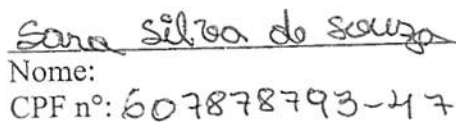 Sara Silva de Souza
Nome:
CPF nº: 607878793-47